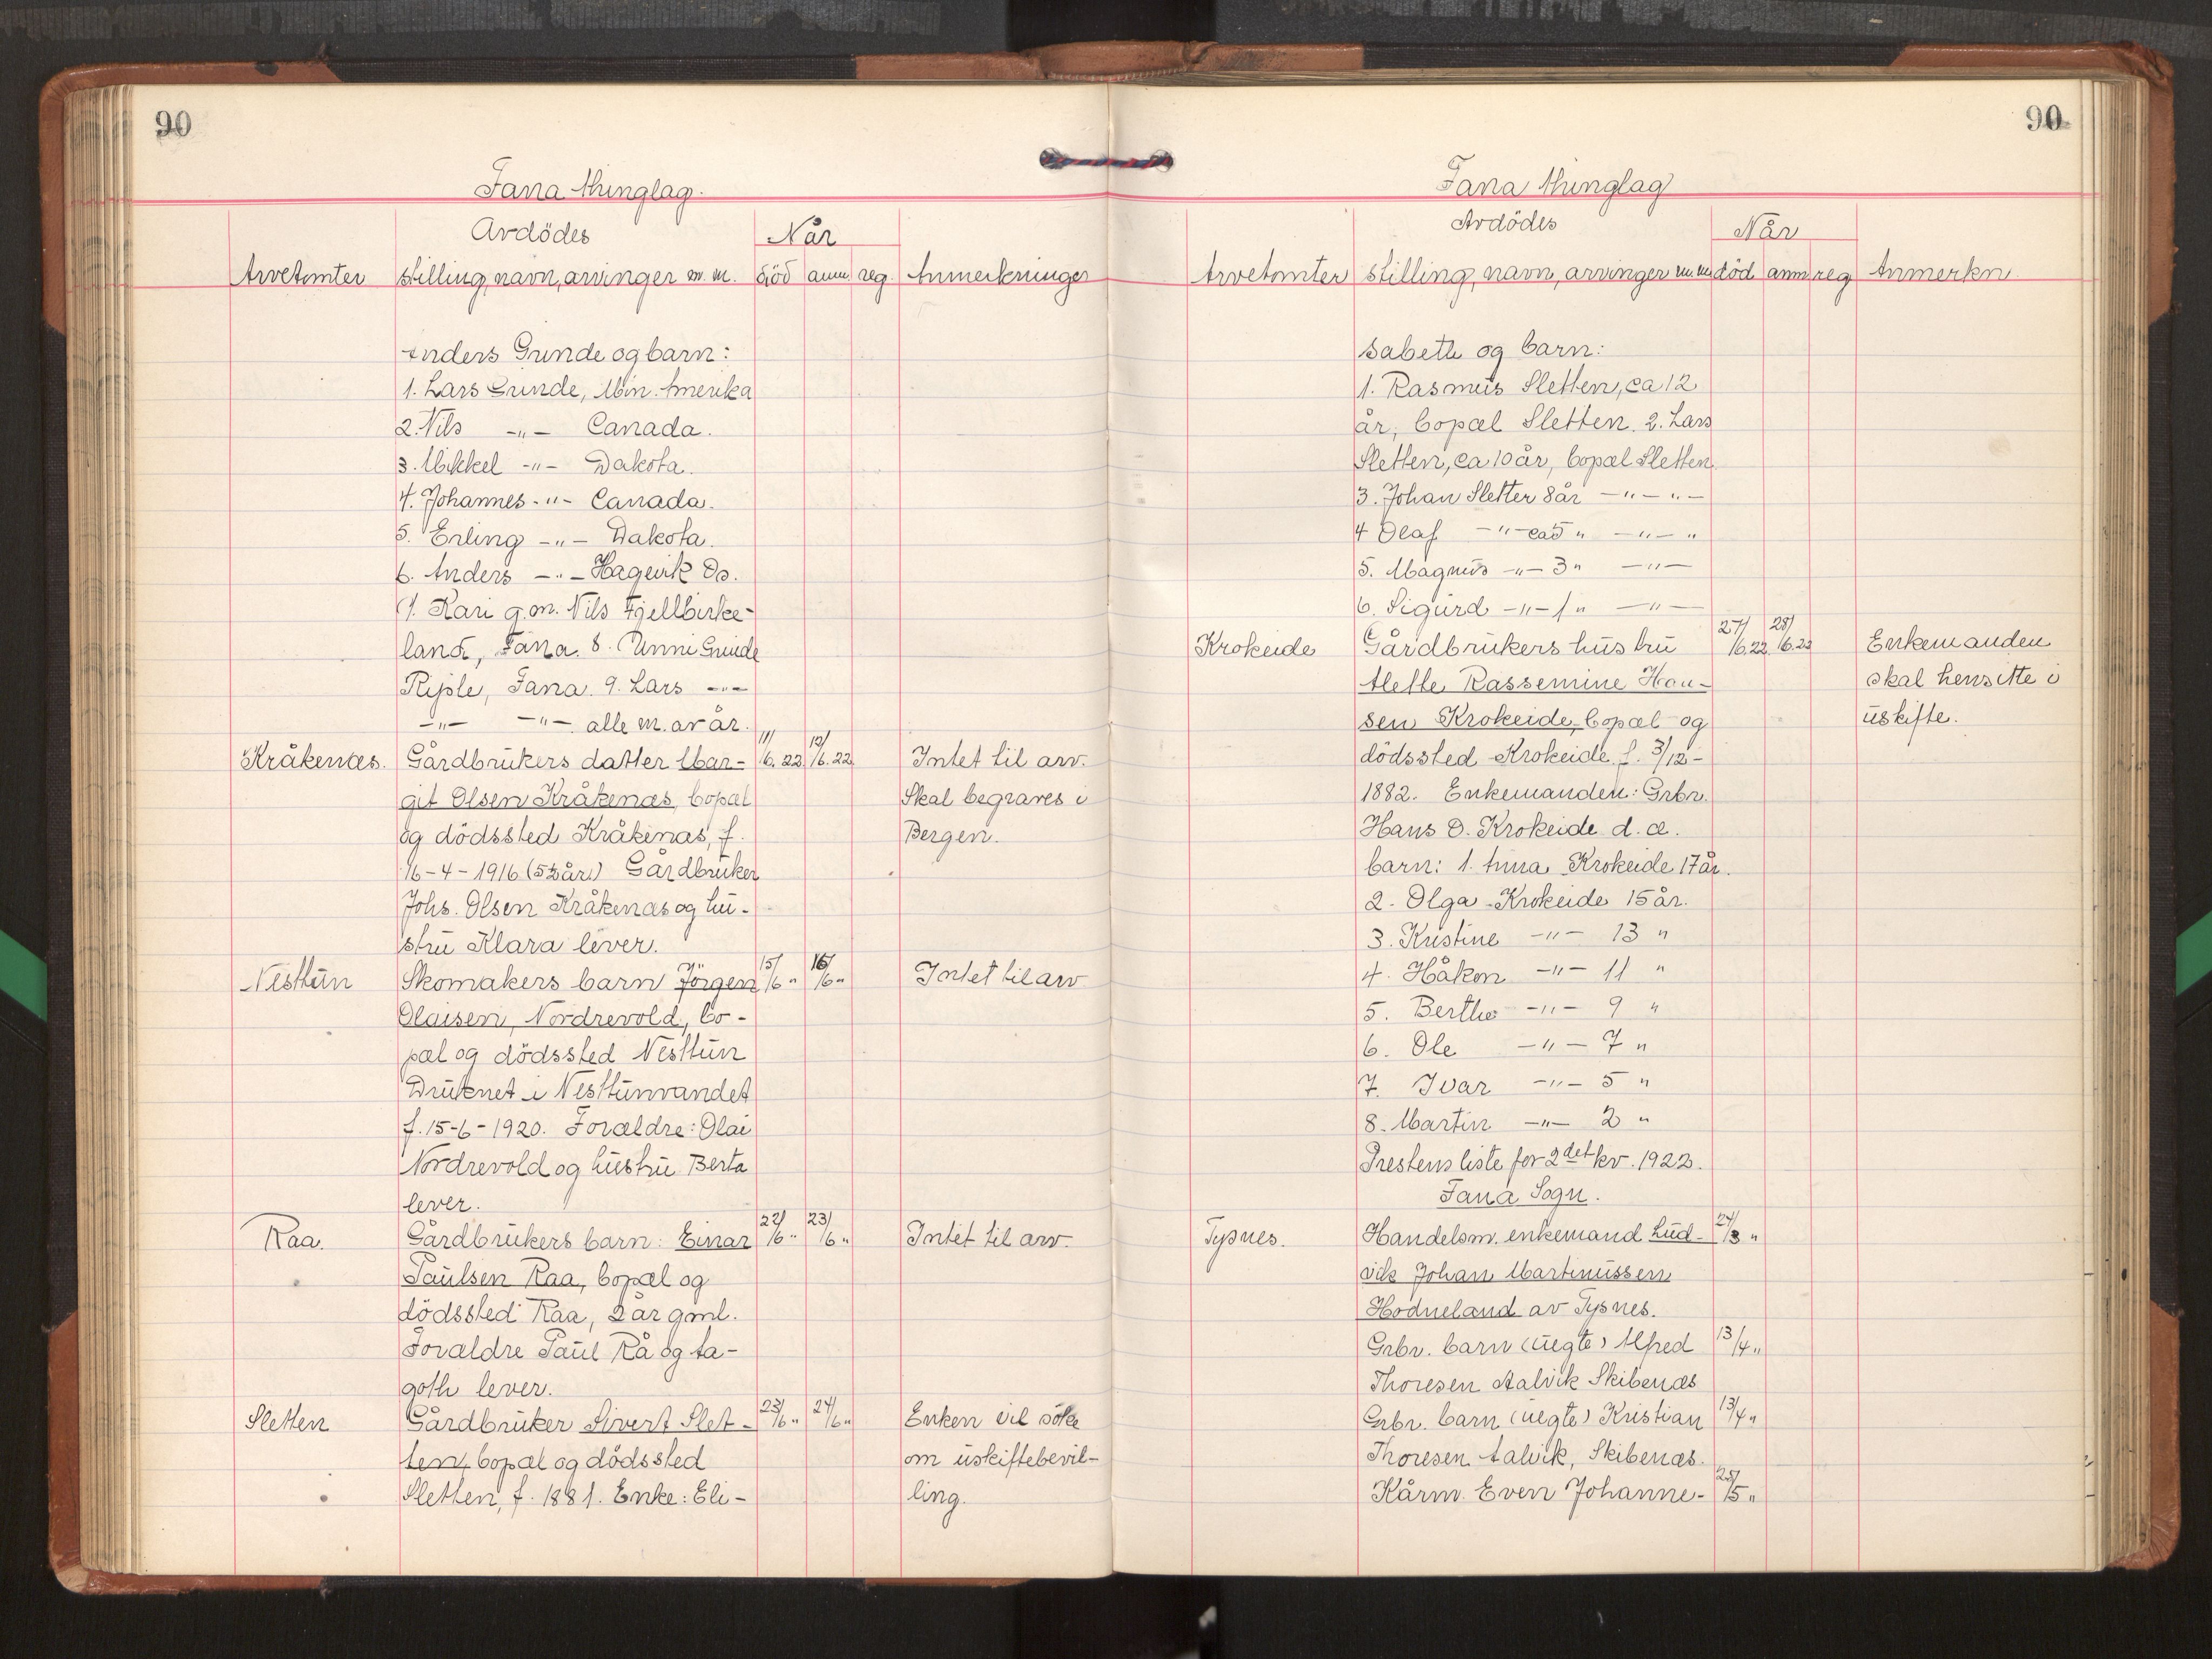 90
Fana thinglag.
Avdödes
Når
Arvetomter stilling, navn, arvinger m. m. död anm. reg. Anmerkninger
Anders Grinde og barn:
1. Lars Grinde, Min. Amerika
2. Nils -"- Canada.
3. Mikkel -"- Dakota.
4. Johannes -"- Canada.
5. Erling -"- Dakota.
6. Anders -"- Hagevik Os.
7. Kari g.m. Nils Fjellbirke-
land, Fana. 8. Unni Grinde
Riple, Fana. 9. Lars -"-
-"- -"- alle m. av år.
Kråkenæs. Gårdbrukers datter Mar- 11/6.22 12/6.22 Intet til arv.
git Olsen Kråkenæs, bopæl Skal begraves i
og dödssted Kråkenæs, f. Bergen.
16-4-1916 (5½ år.) Gårdbruker
Johs. Olsen Kråkenæs og hu-
stru Klara lever.
Nesttun Skomakers barn Jörgen 15/6 " 16/6 " Intet til arv
Olaisen, Nordrevold, bo-
pæl og dödssted Nesttun
Druknet i Nesttunvandet
f. 15-6-1920. Forældre: Olai
Nordrevold og hustru Berta
lever.
Raa. Gårdbrukers barn: Einar 22/6 " 23/6 " Intet til arv.
Paulsen Raa, bopæl og
dödssted Raa, 2 år gml.
Forældre Paul Rå og Aa-
goth lever.
Sletten Gårdbruker Sivert Slet- 23/6 " 24/6 " Enken vil söke
ten, bopæl og dödssted om uskiftebevil-
Sletten, f. 1881. Enke: Eli- ling.
90
Fana thinglag
Avdödes
Når
Arvetomter stilling, navn, arvinger m.m. död anm reg Anmerkn.
sabeth og barn:
1. Rasmus Sletten, ca 12
år, bopæl Sletten. 2. Lars
Sletten, ca 10 år, bopæl Sletten
3. Johan Sletten 8 år -"- "-
4 Olaf -"- ca 5 " -"- "
5. Magnus -"- 3 " -"-
6. Sigurd -"- 1 " -"-
Krokeide Gårdbrukers hustru 27/6.22 28/6.22 Enkemanden
Alette Rassemine Han- skal hensitte i
sen Krokeide, bopæl og uskifte.
dödssted Krokeide f. 3/12-
1882. Enkemanden: Grbr.
Hans O. Krokeide d. æ.
barn: 1. Anna Krokeide 17 år.
2. Olga Krokeide 15 år.
3. Kristine -"- 13 "
4. Håkon -"- 11 "
5. Berthe -"- 9 "
6. Ole -"- 7 "
7. Ivar -"- 5 "
8. Martin -"- 2 "
Prestens liste for 2det kv. 1922.
Fana Sogn.
Tysnes. Handelsm. enkemand Lud- 27/3 "
vik Johan Martinussen
Hodneland av Tysnes.
Grbr. barn (uegte) Alfred 13/4 "
Thoresen Aalvik Skibenæs
Grbr. barn (uegte) Kristian 13/4 "
Thoresen Aalvik, Skibenæs.
Kårm. Even Johanne- 25/5 "